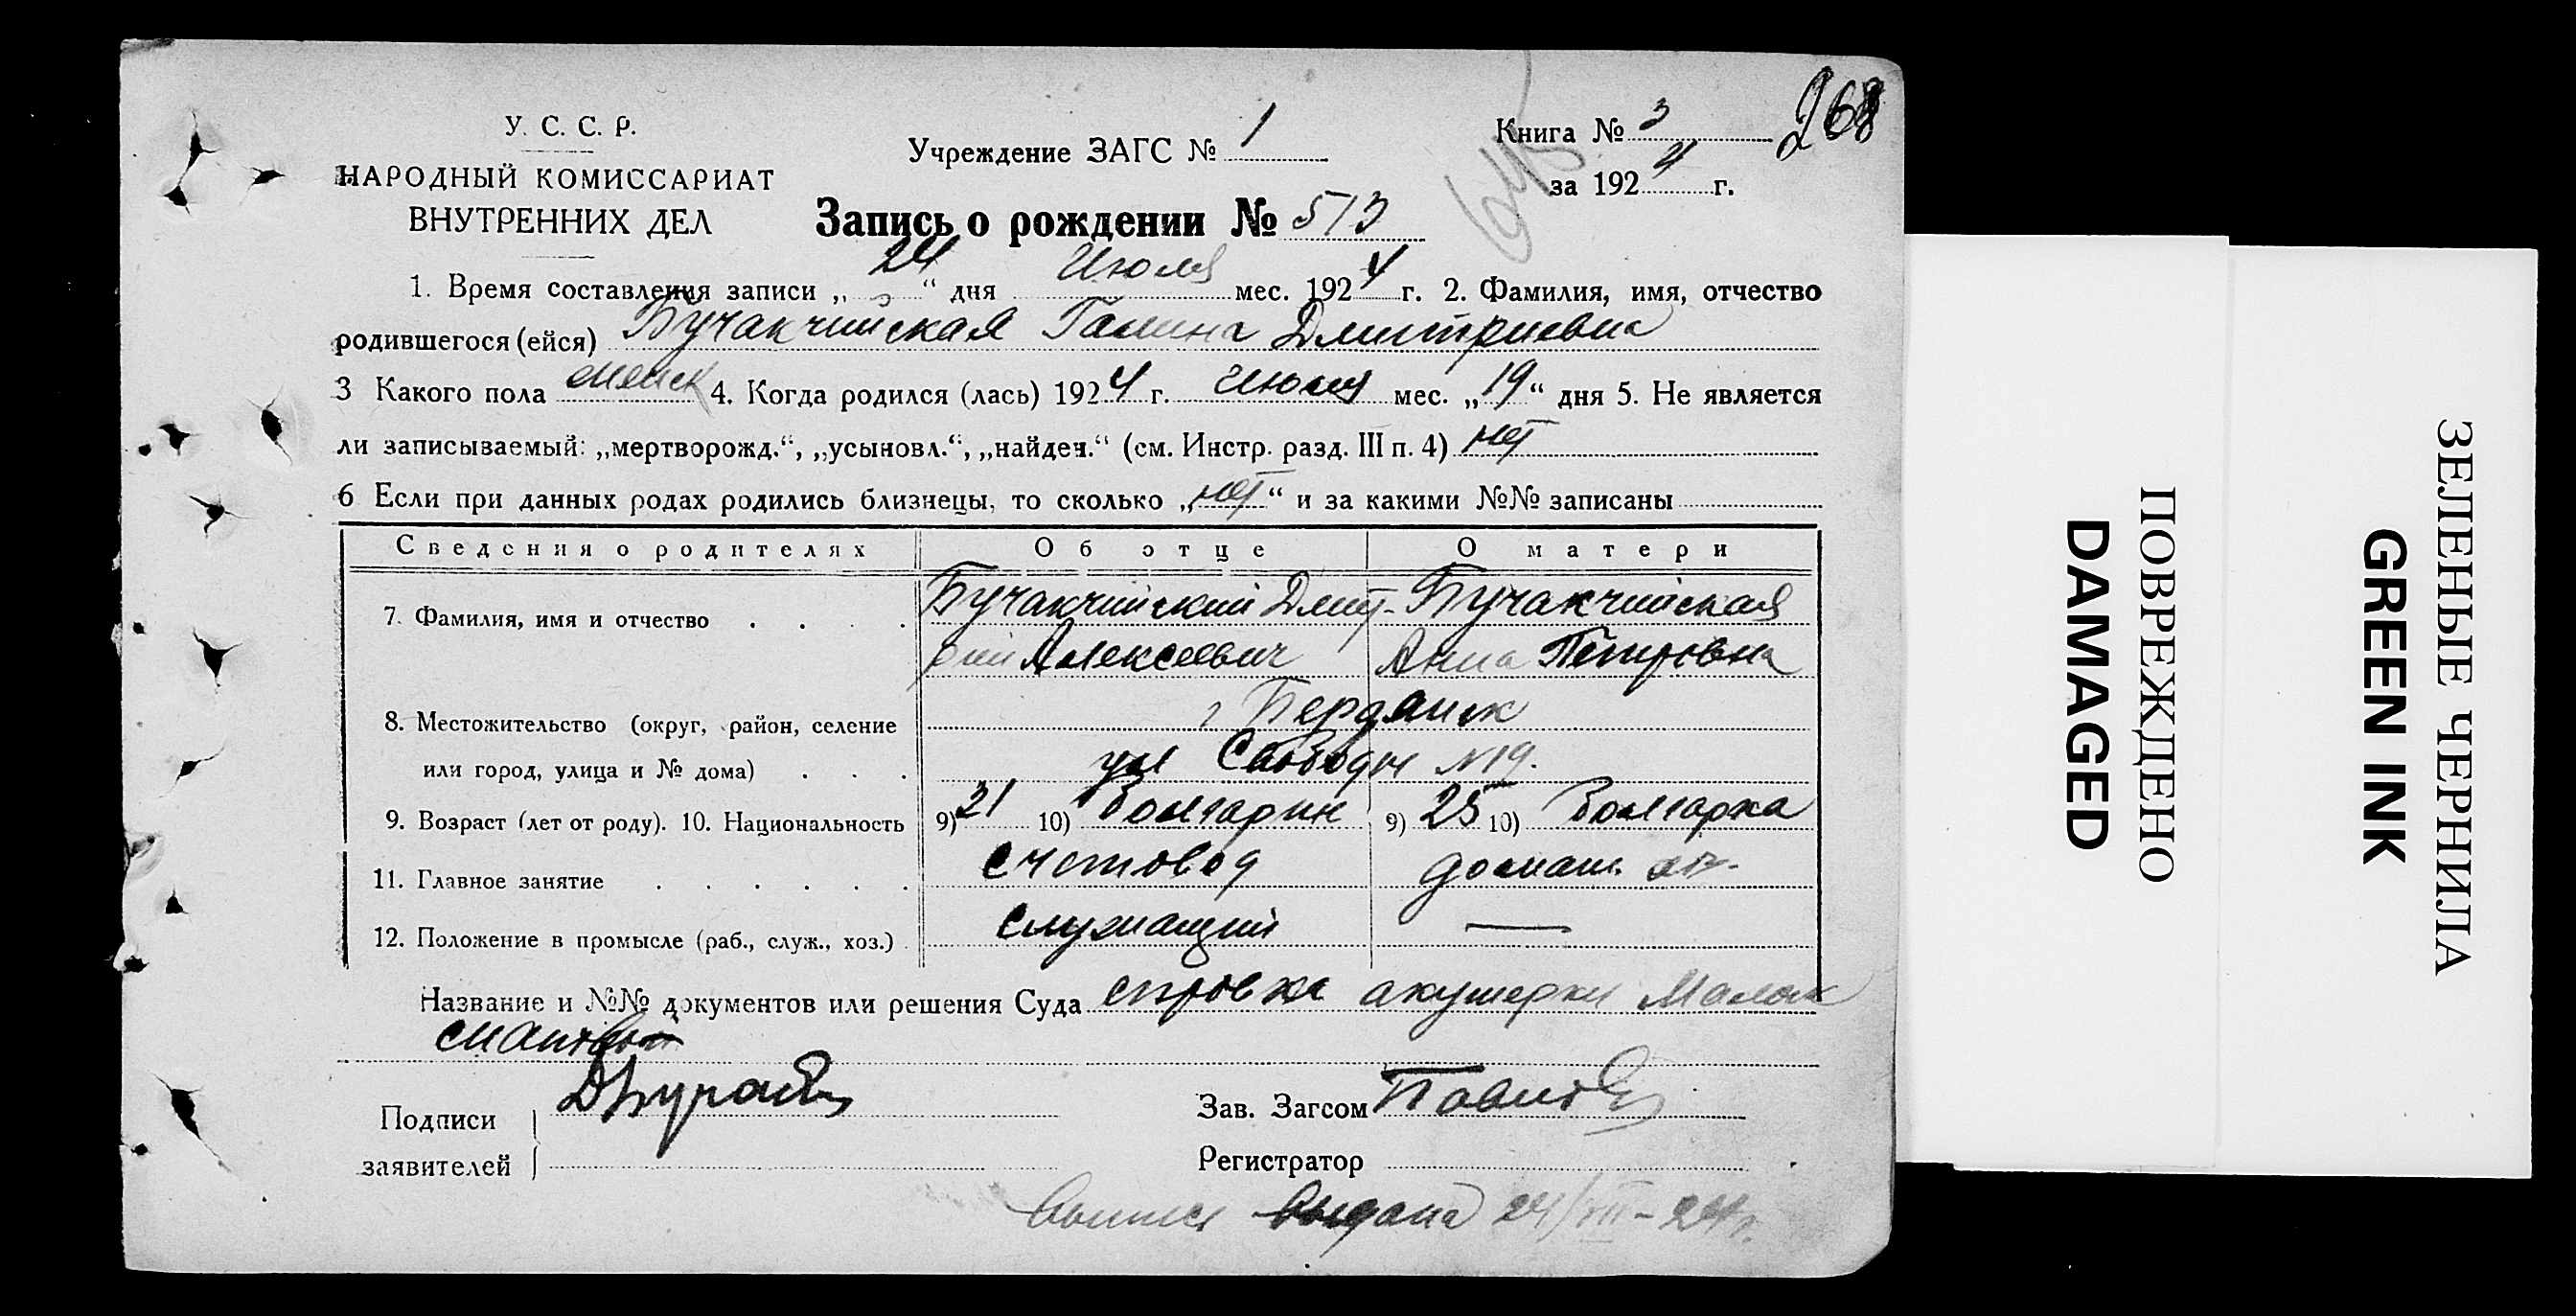 У. С. С. Р.
НАРОДНЫЙ КОМИССАРИАТ
ВНУТРЕННИХ ДЕЛ
Учреждение ЗАГС № 1
Книга № 3
268
за 1924 г.
Запись о рождении № 513
1. Время составления записи „24“ дня Июля мес. 1924 г. 2. Фамилия, имя, отчество
родившегося (ейся) Бучакчийская Галина Дмитриевна
3 Какого пола женск 4. Когда родился (лась) 1924 г. Июля мес. „19“ дня 5. Не является
ли записываемый: „мертворожд.“, „усыновл.“, „найден.“ (см. Инстр. разд. III п. 4) нет
6 Если при данных родах родились близнецы, то сколько „нет“ и за какими №№ записаны
Сведения о родителях Об отце О матери
7. Фамилия, имя и отчество Бучакчийский Дмит- Бучакчийская
рий Алексеевич Анна Петровна
8. Местожительство (округ, район, селение г Бердянск
или город, улица и № дома) ул Свободы №19.
9. Возраст (лет от роду). 10. Национальность 9) 21 10) Болгарин 9) 25 10) Болгарка
11. Главное занятие счетовод домаш. хоз.
12. Положение в промысле (раб., служ., хоз.) служащий —
Название и №№ документов или решения Суда справка акушерки
Подписи
заявителей
Зав. Загсом
Регистратор
выпись выдана 24/VII-24г.
ПОВРЕЖДЕНО
DAMAGED
ЗЕЛЕНЫЕ ЧЕРНИЛА
GREEN INK